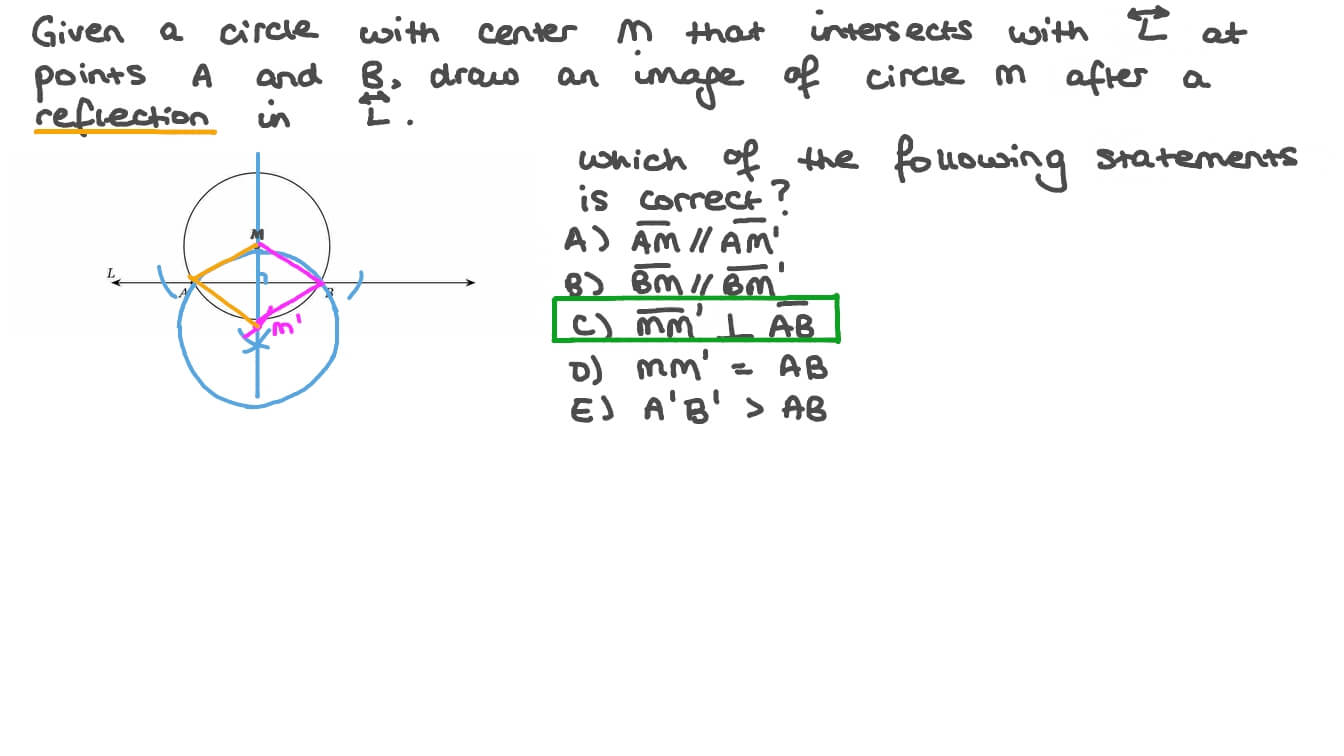 Given a circle with center M that intersects with L at
points A and B, draw an image of circle m after a
reflection in L.
which of the following statements
is correct?
A) AM // AM'
B) BM // BM'
C) MM' ⊥ AB
D) MM' = AB
E) A'B' > AB
M
L
A
B
m'